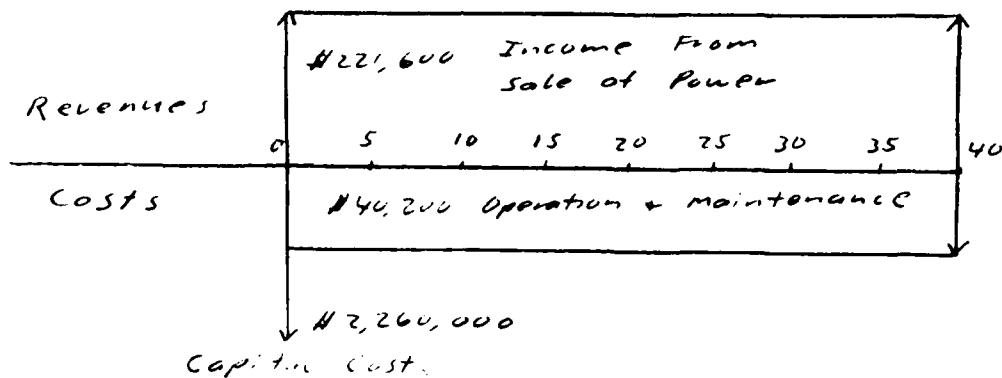 $221,600 Income From
Sale of Power
Revenues
0 5 10 15 20 25 30 35 40
Costs
$40,200 Operation + Maintenance
$2,260,000
Capital Cost.